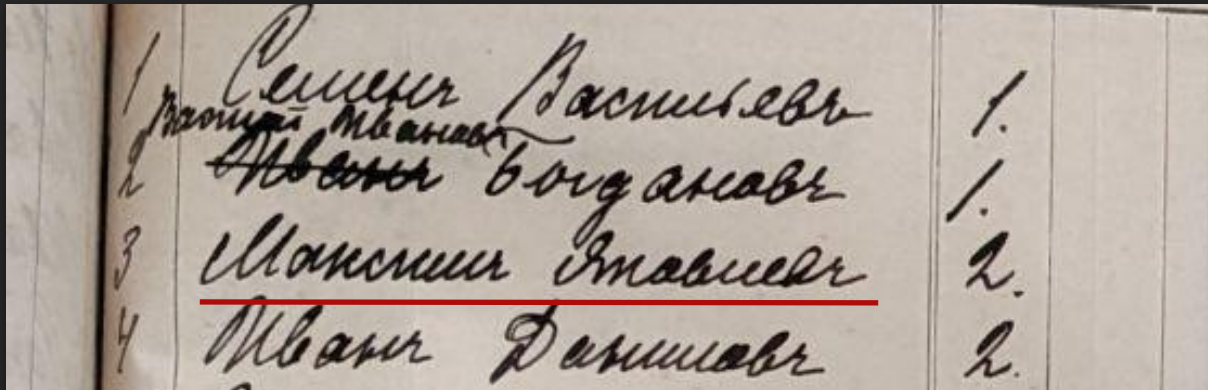 1 Семенъ Васильевъ 1.
Василій Ивановъ
2 Иванъ Богдановъ 1.
3 Максимъ Яковлевъ 2.
4 Иванъ Даниловъ 2.